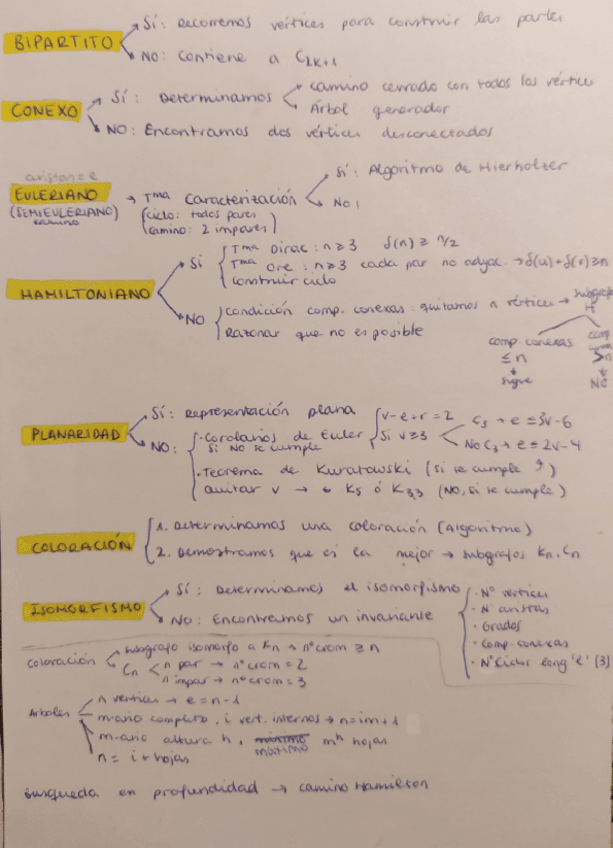 BIPARTITO
Sí: Recorremos vértices para construir las partes
NO: Contiene a C2K+1
CONEXO
Sí: Determinamos
camino cerrado con todos los vértices
Árbol generador
NO: Encontramos dos vértices desconectados
EULERIANO
(SEMIEULERIANO)
camino
→ Tma Caracterización
(ciclo: todos pares
camino: 2 impares)
Sí: Algoritmo de Hierholzer
No
HAMILTONIANO
Sí
Tma Dirac: n≥3 δ(n) ≥ n/2
Tma Ore: n≥3 cada par no adyac. → δ(u)+δ(v)≥n
Construir ciclo
NO
Condición comp. conexas: quitamos n vértices → subgrafo H
Razonar que no es posible
comp. conexas ≤n
↓
sigue
comp. conexas >n
↓
NO
PLANARIDAD
Sí: Representación plana
NO:
· Corolarios de Euler
si NO se cumple
v-e+r=2
Si v≥3
C3 → e≤3v-6
No C3 → e≤2v-4
· Teorema de Kuratowski (si se cumple)
Quitar v → K5 ó K3,3 (NO, si se cumple)
COLORACIÓN
1. Determinamos una coloración (Algoritmo)
2. Demostramos que es la mejor → subgrafos Kn, Cn
ISOMORFISMO
Sí: Determinamos el isomorfismo
NO: Encontremos un invariante
· Nº vértices
· Nº aristas
· Grados
· Comp. conexas
· Nº Ciclos long 'l' (3)
Coloración
subgrafo isomorfo a Kn → nº crom ≥ n
Cn
n par → nº crom = 2
n impar → nº crom = 3
Árboles
n vértices → e = n-1
m-ario completo, i vert. internos → n=im+1
m-ario altura h, máximo mh hojas
n = i + hojas
Búsqueda en profundidad → camino Hamilton